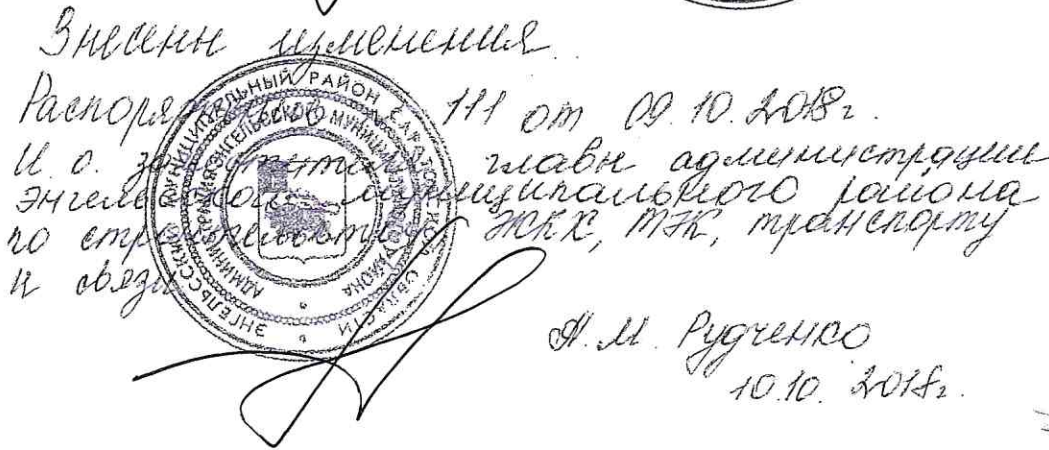 Внесены изменения.
Распоряжение 111 от 09.10.2018г.
И.о. заместителя главы администрации
Энгельсского муниципального района
по строительству, ЖКХ, ТЭК, транспорту
и связи
А.М. Рудченко
10.10. 2018г.
ЭНГЕЛЬССКИЙ МУНИЦИПАЛЬНЫЙ РАЙОН САРАТОВСКОЙ ОБЛАСТИ
АДМИНИСТРАЦИЯ ЭНГЕЛЬССКОГО МУНИЦИПАЛЬНОГО РАЙОНА